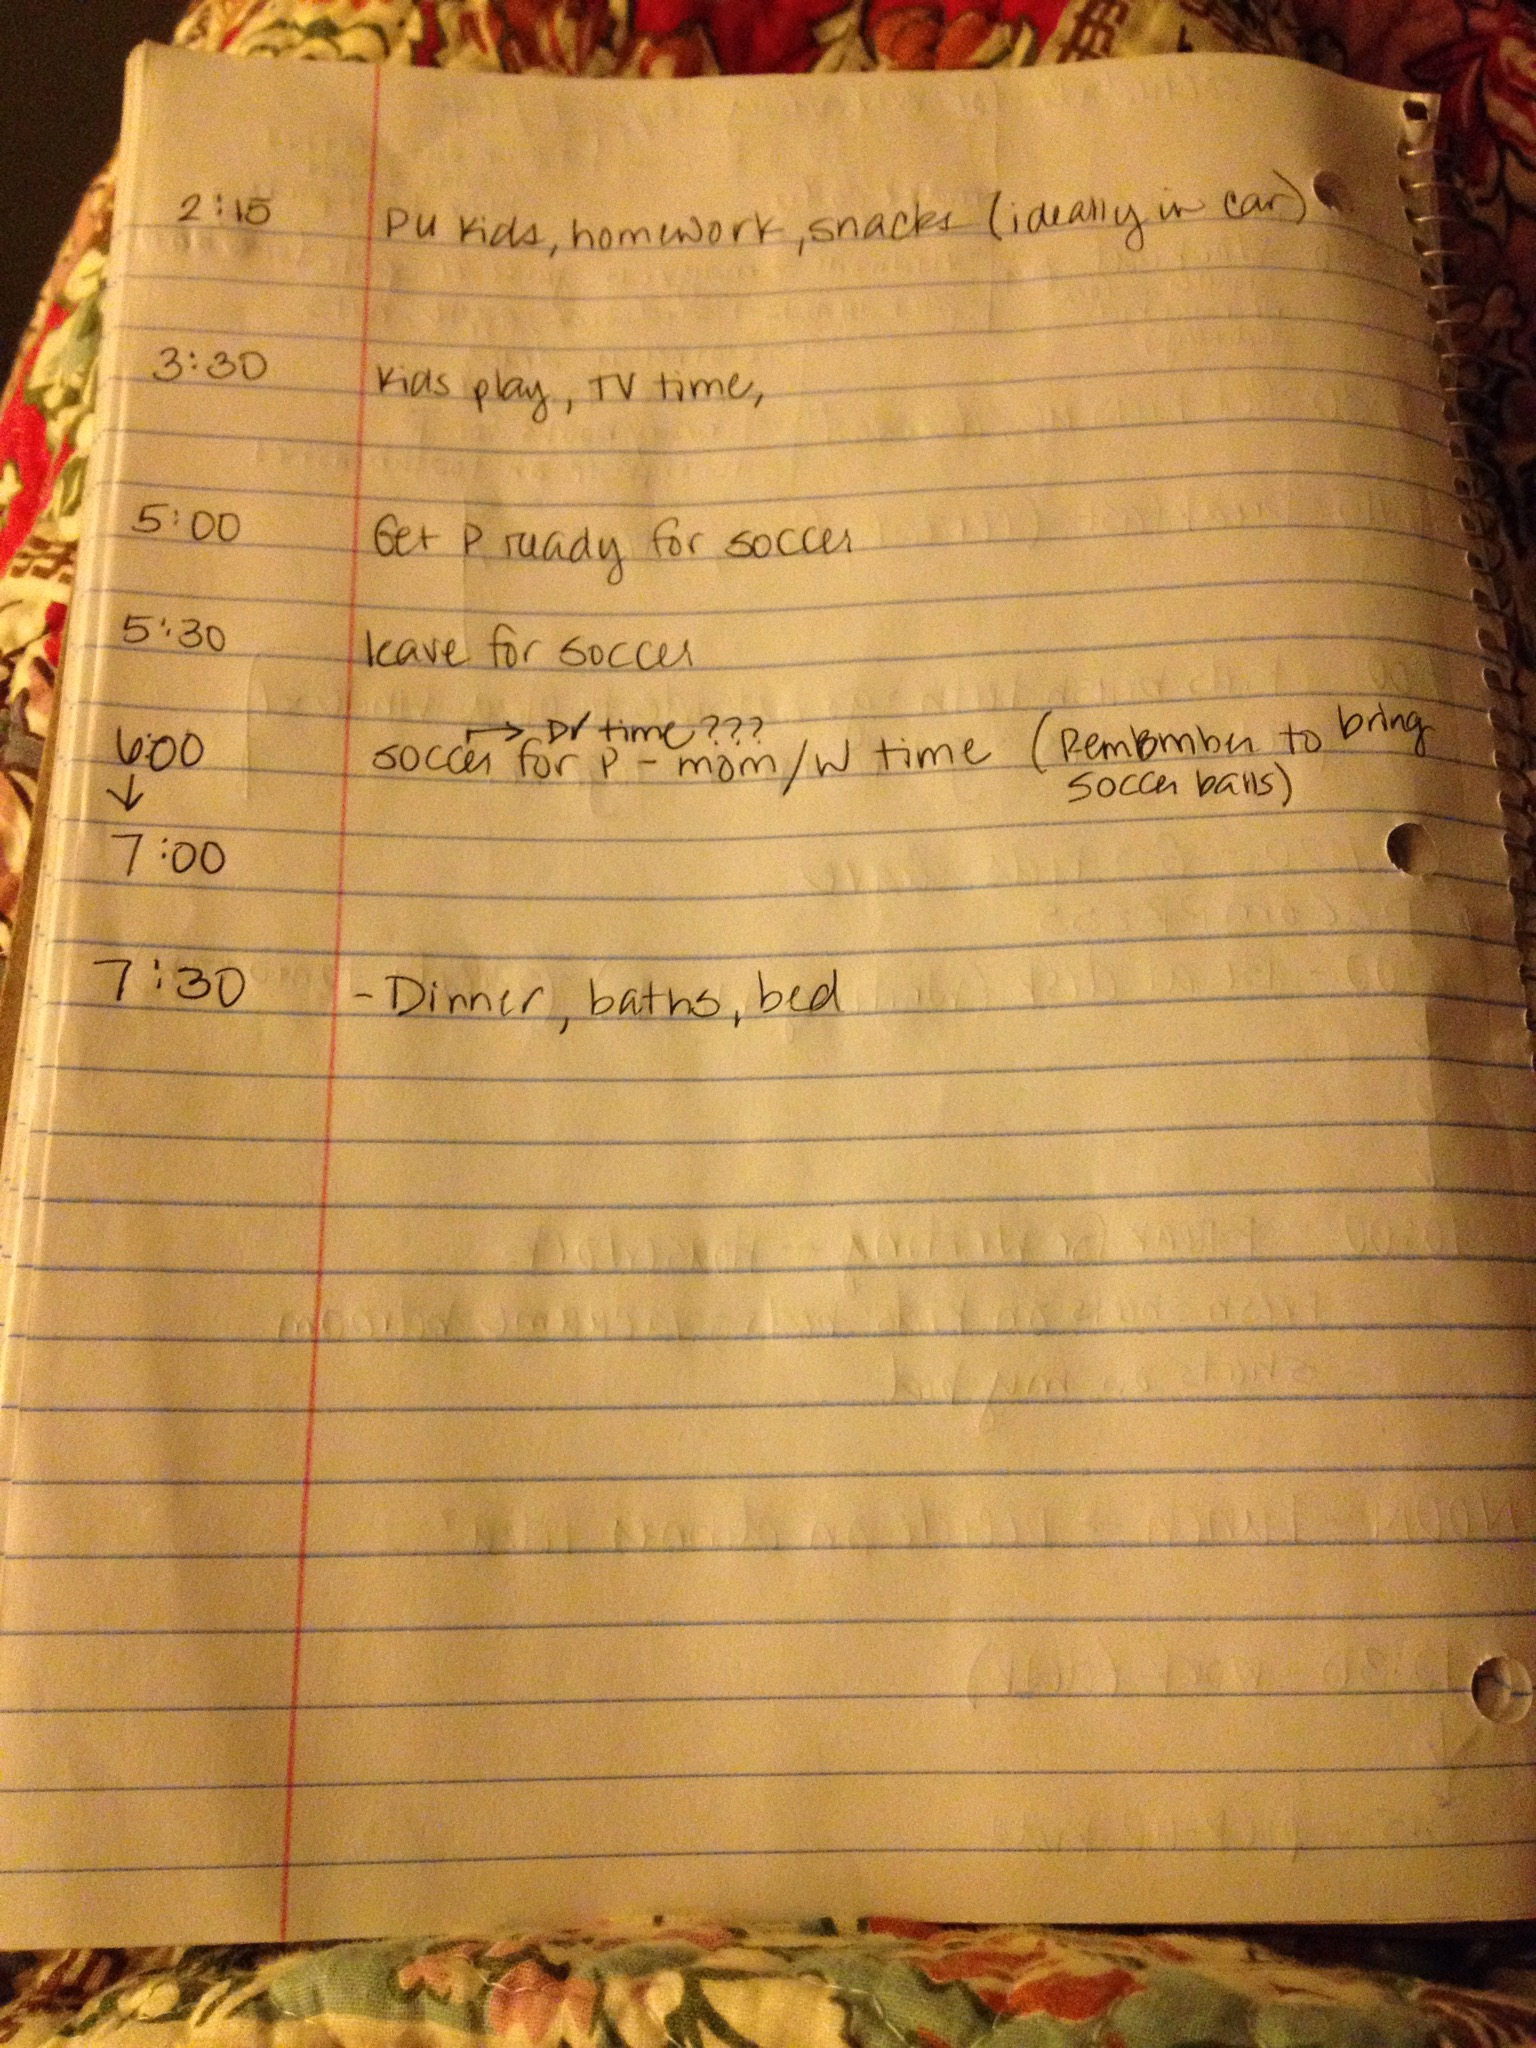 2:15 PU kids, homework, snacks (ideally in car)
3:30 Kids play, TV time,
5:00 Get P ready for soccer
5:30 leave for soccer
→ time ???
6:00 soccer for P - mom/W time (Remember to bring
↓ soccer balls)
7:00
7:30 - Dinner, baths, bed